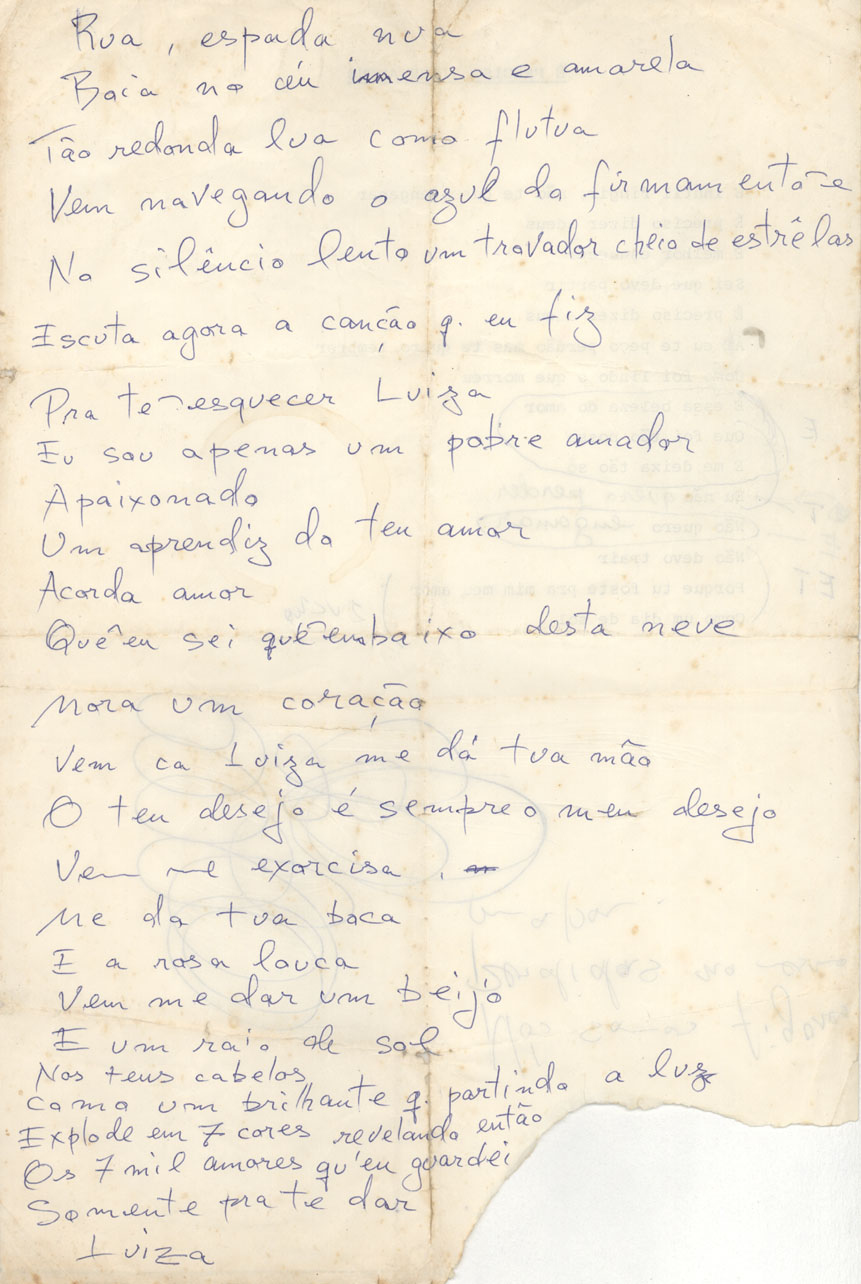 Rua, espada nua
Boia no céu imensa e amarela
Tão redonda lua como flutua
Vem navegando o azul do firmamento e
No silêncio lento um trovador cheio de estrêlas
Escuta agora a canção q. eu fiz
Pra te esquecer Luiza
Eu sou apenas um pobre amador
Apaixonado
Um aprendiz do teu amor
Acorda amor
Que eu sei que embaixo desta neve
Mora um coração
Vem ca Luiza me dá tua mão
O teu desejo é sempre o meu desejo
Vem me exorcisa.
Me da tua boca
E a rosa louca
Vem me dar um beijo
E um raio de sol
Nos teus cabelos
Como um brilhante q. partindo a luz
Explode em 7 cores revelando então
Os 7 mil amores qu'eu guardei
Somente pra te dar
Luiza